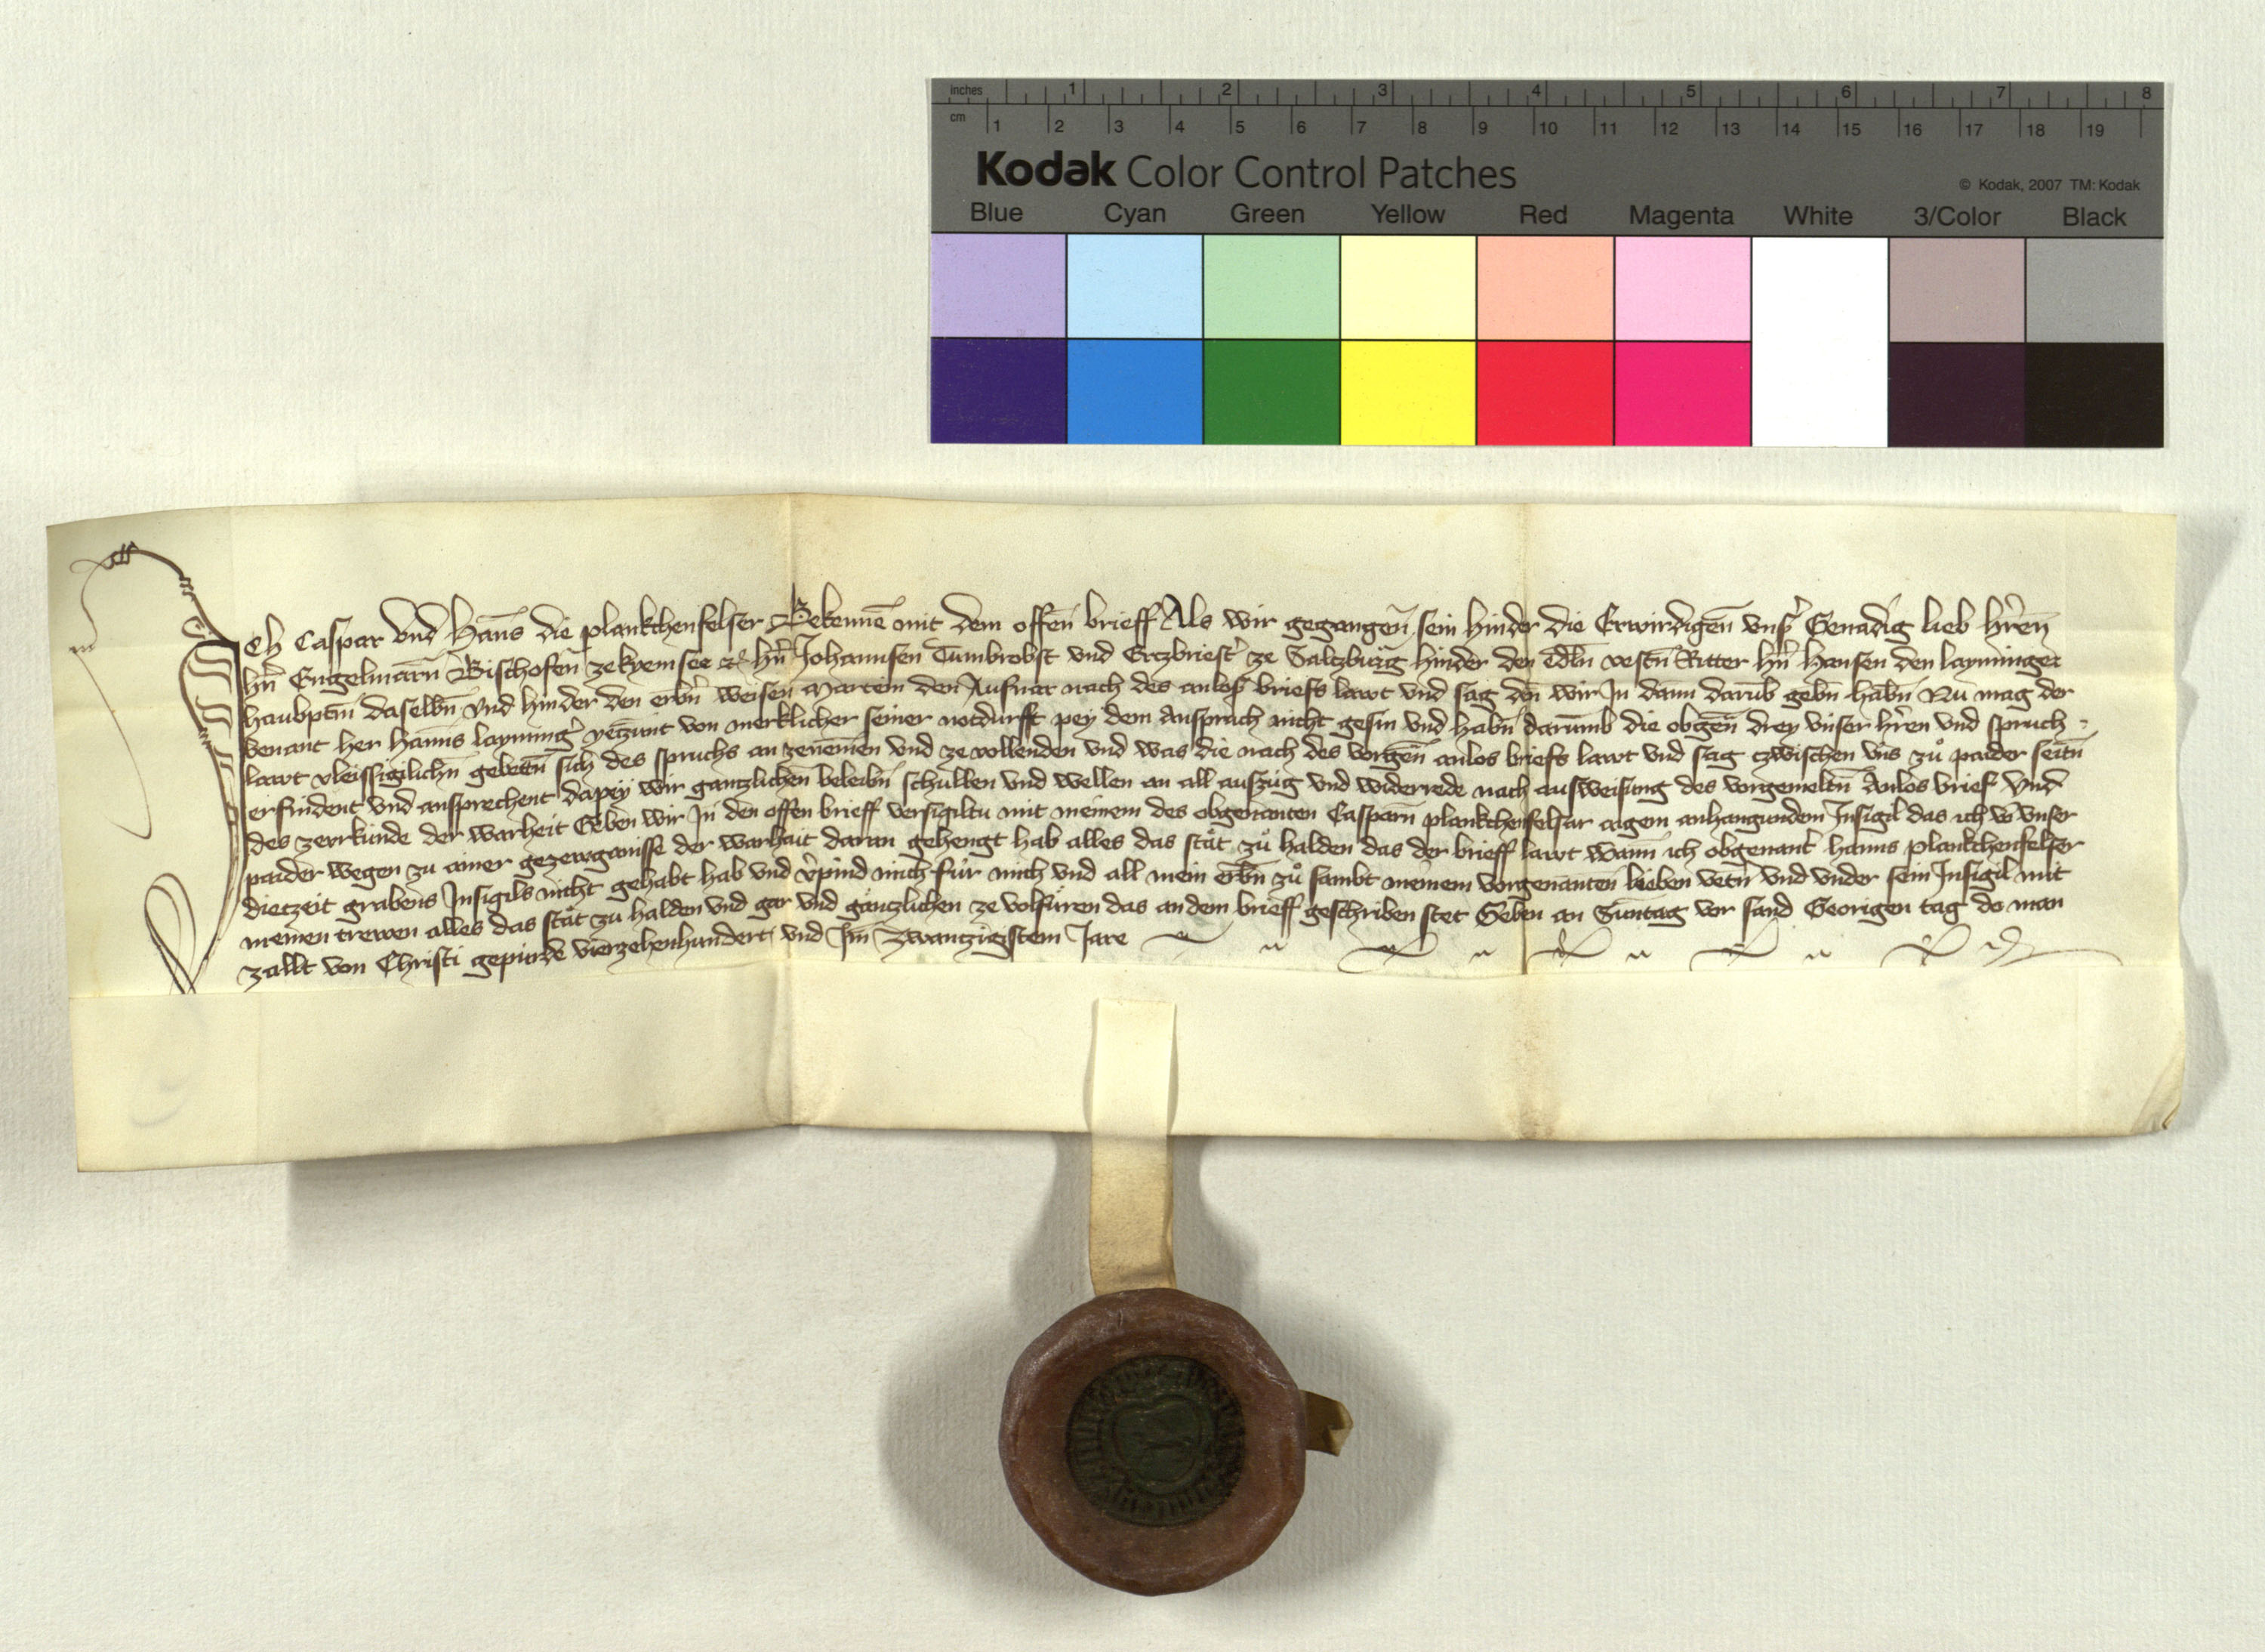 inches 1 2 3 4 5 6 7 8
cm 1 2 3 4 5 6 7 8 9 10 11 12 13 14 15 16 17 18 19
Kodak Color Control Patches
© Kodak, 2007 TM: Kodak
Blue Cyan Green Yellow Red Magenta White 3/Color Black
Ich Caspar vnd Hanns die plankchenfelser Bekennen̄ mit dem offen̄ brieff Als wir gegangen̄ sein hinder die Erwirdigen̄ vnsʼ Genadig lieb hʼren̄
hn̄ Engelmarn̄ Bischofen̄ ze kyemsee hn̄ Johannsen Tumbrobst vnd Ertzbriestʼ ze Saltzburg hinder den edln̄ vestn̄ Ritter hn̄ Hansen den layminger
haubptm̄ daselbn̄ vnd hinder den erbn̄ weisen Martein den Aufnar nach des anlos briefs lawt vnd sag den wir In dann darub̄ gebn̄ habn̄ Nu mag der
benant her Hanns laymingʼ yeczunt von merklicher seiner notdurfft pey dem Ansprach nicht gesin vnd habn̄ darumb die obgen̄ drey vnser hʼren vnd spruch
lawt vleissigilichn̄ gebetn̄ sich des spruchs an zenemen vnd ze vollenden vnd was die nach des vorgen̄ anlos briefs lawt vnd sag czwischen vns zů paider seitn̄
erfindent vnd ansprechent dapey wir gantzlichen beleibn̄ schullen vnd wellen an all auszug vnd widerrede nach ausweisung des vorgemeltn̄ Anlos brief Vnd
des zeurkunde der warheit Geben wir In den offen brieff versigiltn mit meinem des obgenanten Casparn̄ plankchenfelsar aigem anhangundem Insigil das ich vō vnser
paider wegen zu ainer gezewgnuisse der warhait daran gehengt hab alles das stät zů halden das der brieff lawt Wann ich obgenantʼ hanns plankchenfelser
dietzeit grabens Insigils nicht gehabt hab vnd vʼpind mich für mich vnd all mein erbn̄ zů sambt meinem vorgenanten lieben vetn̄ vnd vnder sein Insigil mit
meinen trewen alles das stät zu halden vnd gar vnd gäntzlichen ze volfüren das an dem brieff geschriben stet Geben an Suntag vor sand Georigen tag do man
zallt von Christi gepurde vierzehenhundert vnd Im Zwantzigstem Jare